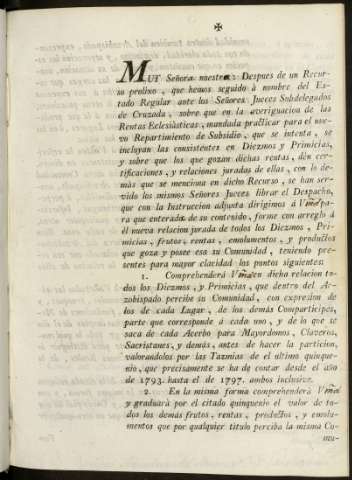 ✠
MUY Señora nuestra: Despues de un Recur-
so prolixo, que hemos seguido à nombre del Es-
tado Regular ante los Señores Jueces Subdelegados
de Cruzada, sobre que en la averiguacion de las
Rentas Eclesiàsticas, mandada pràcticar para el nue-
vo Repartimiento de Subsidio, que se intenta, se
incluyan las consistentes en Diezmos y Primicias,
y sobre que los que gozan dichas rentas, dén cer-
tificaciones, y relaciones juradas de ellas, con lo de-
màs que se menciona en dicho Recurso, se han ser-
vido los mismos Señores Jueces librar el Despacho,
que con la Instruccion adjunta dirigimos à Vmd pa-
ra que enterada de su contenido, forme con arreglo à
èl nueva relacion jurada de todos los Diezmos, Pri-
micias, frutos, rentas, emolumentos, y productos
que goza y posee esa su Comunidad, teniendo pre-
sentes para mayor claridad los puntos siguientes:
1. Comprehenderá Vmd en dicha relacion to-
dos los Diezmos, y Primicias, que dentro del Ar-
zobispado percibe su Comunidad, con expresion de
los de cada Lugar, de los demàs Comparticipes,
parte que corresponde à cada uno, y de lo que se
saca de cada Acerbo para Mayordomos, Claveros,
Sacristanes, y demàs, antes de hacer la particion,
valorandolos por las Tazmias del ultimo quinque-
nio, que precisamente se ha de contar desde el año
de 1793. hasta el de 1797. ambos inclusive.
2. En la misma forma comprehenderà Vmd
y graduarà por el citado quinquenio el valor de to-
dos los demàs frutos, rentas, productos, y emolu-
mentos que por qualquier titulo perciba la misma Co-
mu-